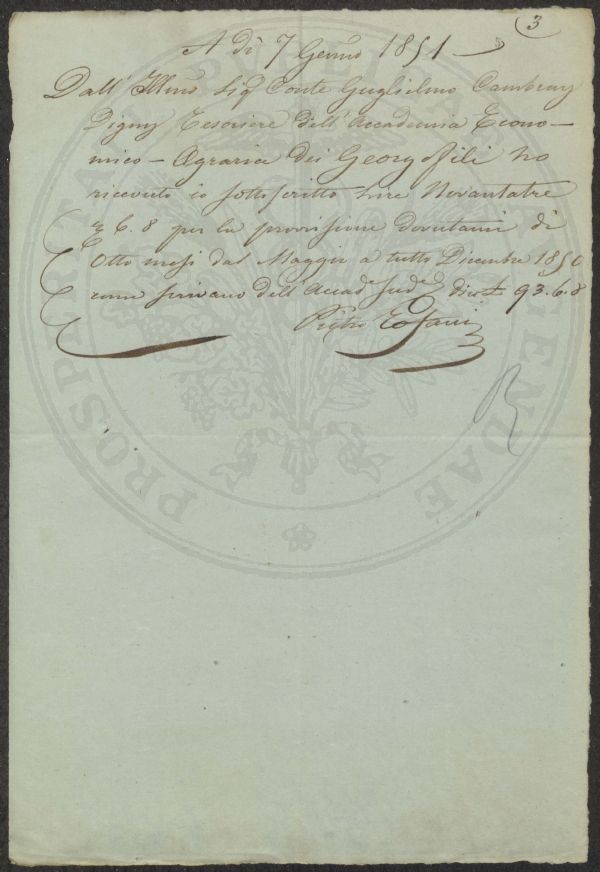 3
A dì 7 Genno 1851
Dall' Illmo Sigr Conte Guglielmo Cambray
Digny Tesoriere dell' Accademia Econo-
mico-Agraria dei Georgofili ho
ricevuto io sottoscritto Lire Novantatre
e 6. 8 per la provvisione dovutami di
Otto mesi dal Maggio a tutto Dicembre 1850
come scrivano dell' Accade sudde dico £ 93.6.8
Pietro
PROSPERITATI PUBLICAE AUGENDAE